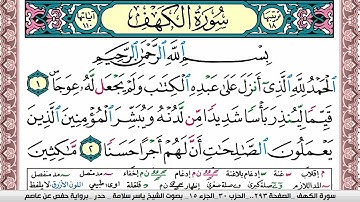 ترتيبها ١٨
سُورَةُ الْكَهْفِ
آياتها ١١٠
بِسْمِ اللَّهِ الرَّحْمَٰنِ الرَّحِيمِ
الْحَمْدُ لِلَّهِ الَّذِي أَنزَلَ عَلَىٰ عَبْدِهِ الْكِتَابَ وَلَمْ يَجْعَل لَّهُ عِوَجًا ١
قَيِّمًا لِّيُنذِرَ بَأْسًا شَدِيدًا مِّن لَّدُنْهُ وَيُبَشِّرَ الْمُؤْمِنِينَ الَّذِينَ
يَعْمَلُونَ الصَّالِحَاتِ أَنَّ لَهُمْ أَجْرًا حَسَنًا ٢ مَّاكِثِينَ
سورة الكهف الصفحة ٢٩٣ الحزب ٣٠ الجزء ١٥ بصوت الشيخ ياسر سلامة رواية حفص عن عاصم